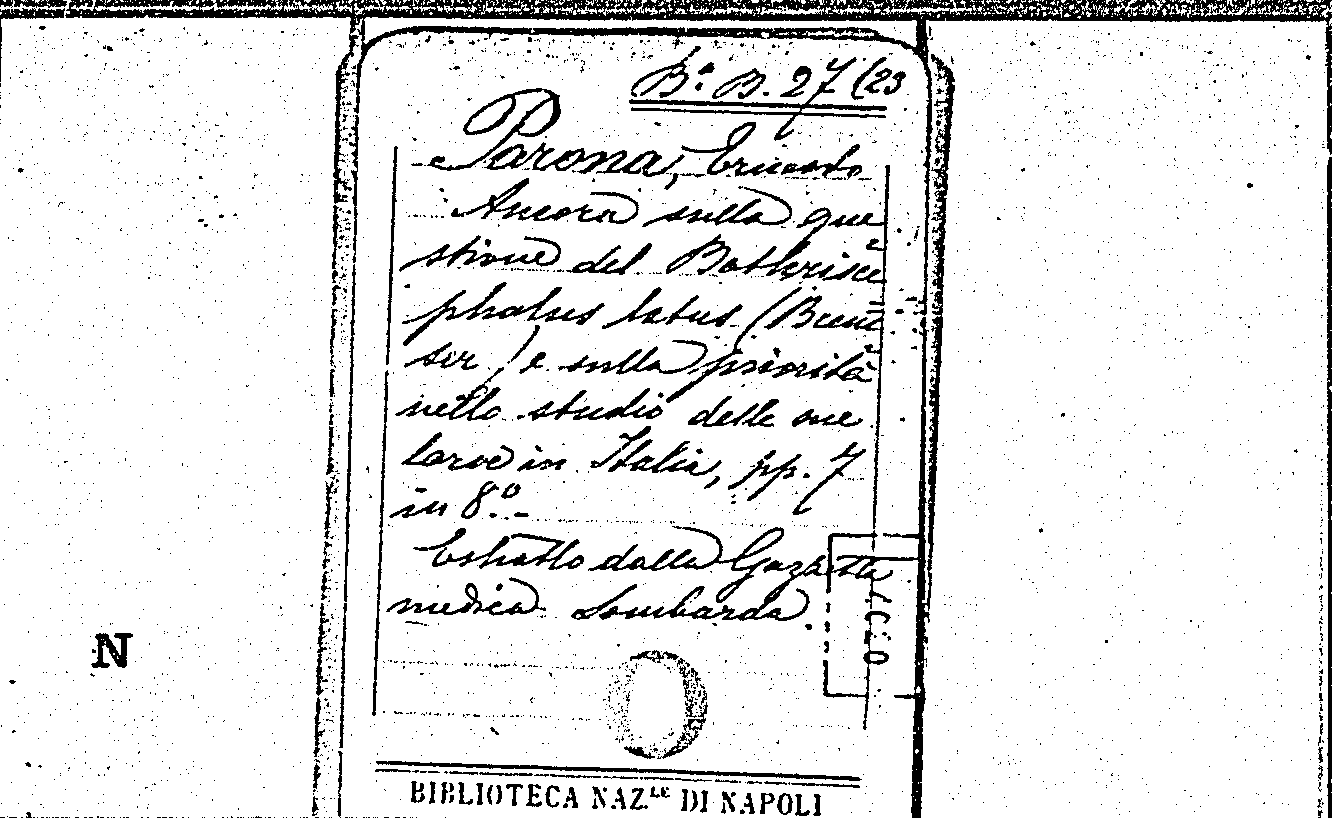 Bª. B. 27 (23
Parona, Ernesto
Ancora sulla que=
stione del Bothrioce=
phalus latus (Brem=
ser) e sulla priorità
nello studio delle sue
larve in Italia, pp. 7
in 8.º-
Estratto dalla Gazzetta
medica Lombarda.
N
BIBLIOTECA NAZ.LE DI NAPOLI